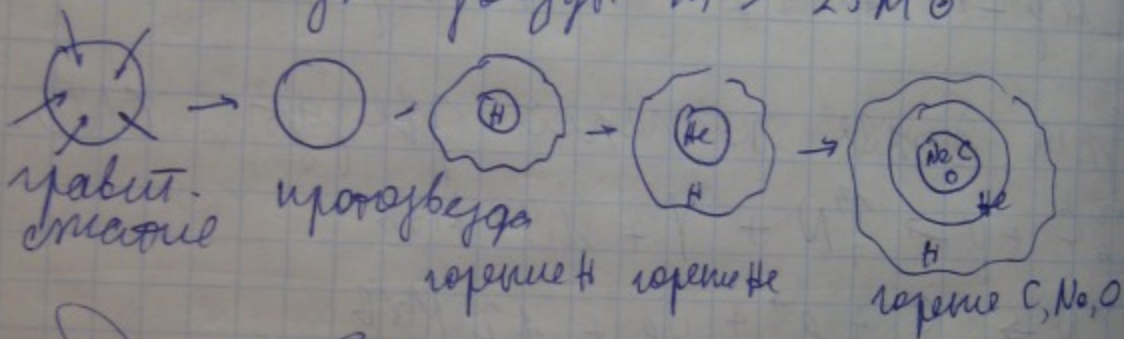 M > 25M⊙
H
He
H
Na C
O
He
H
гравит.
сжатие
протозвезда
горение H
горение He
горение C, Na, O